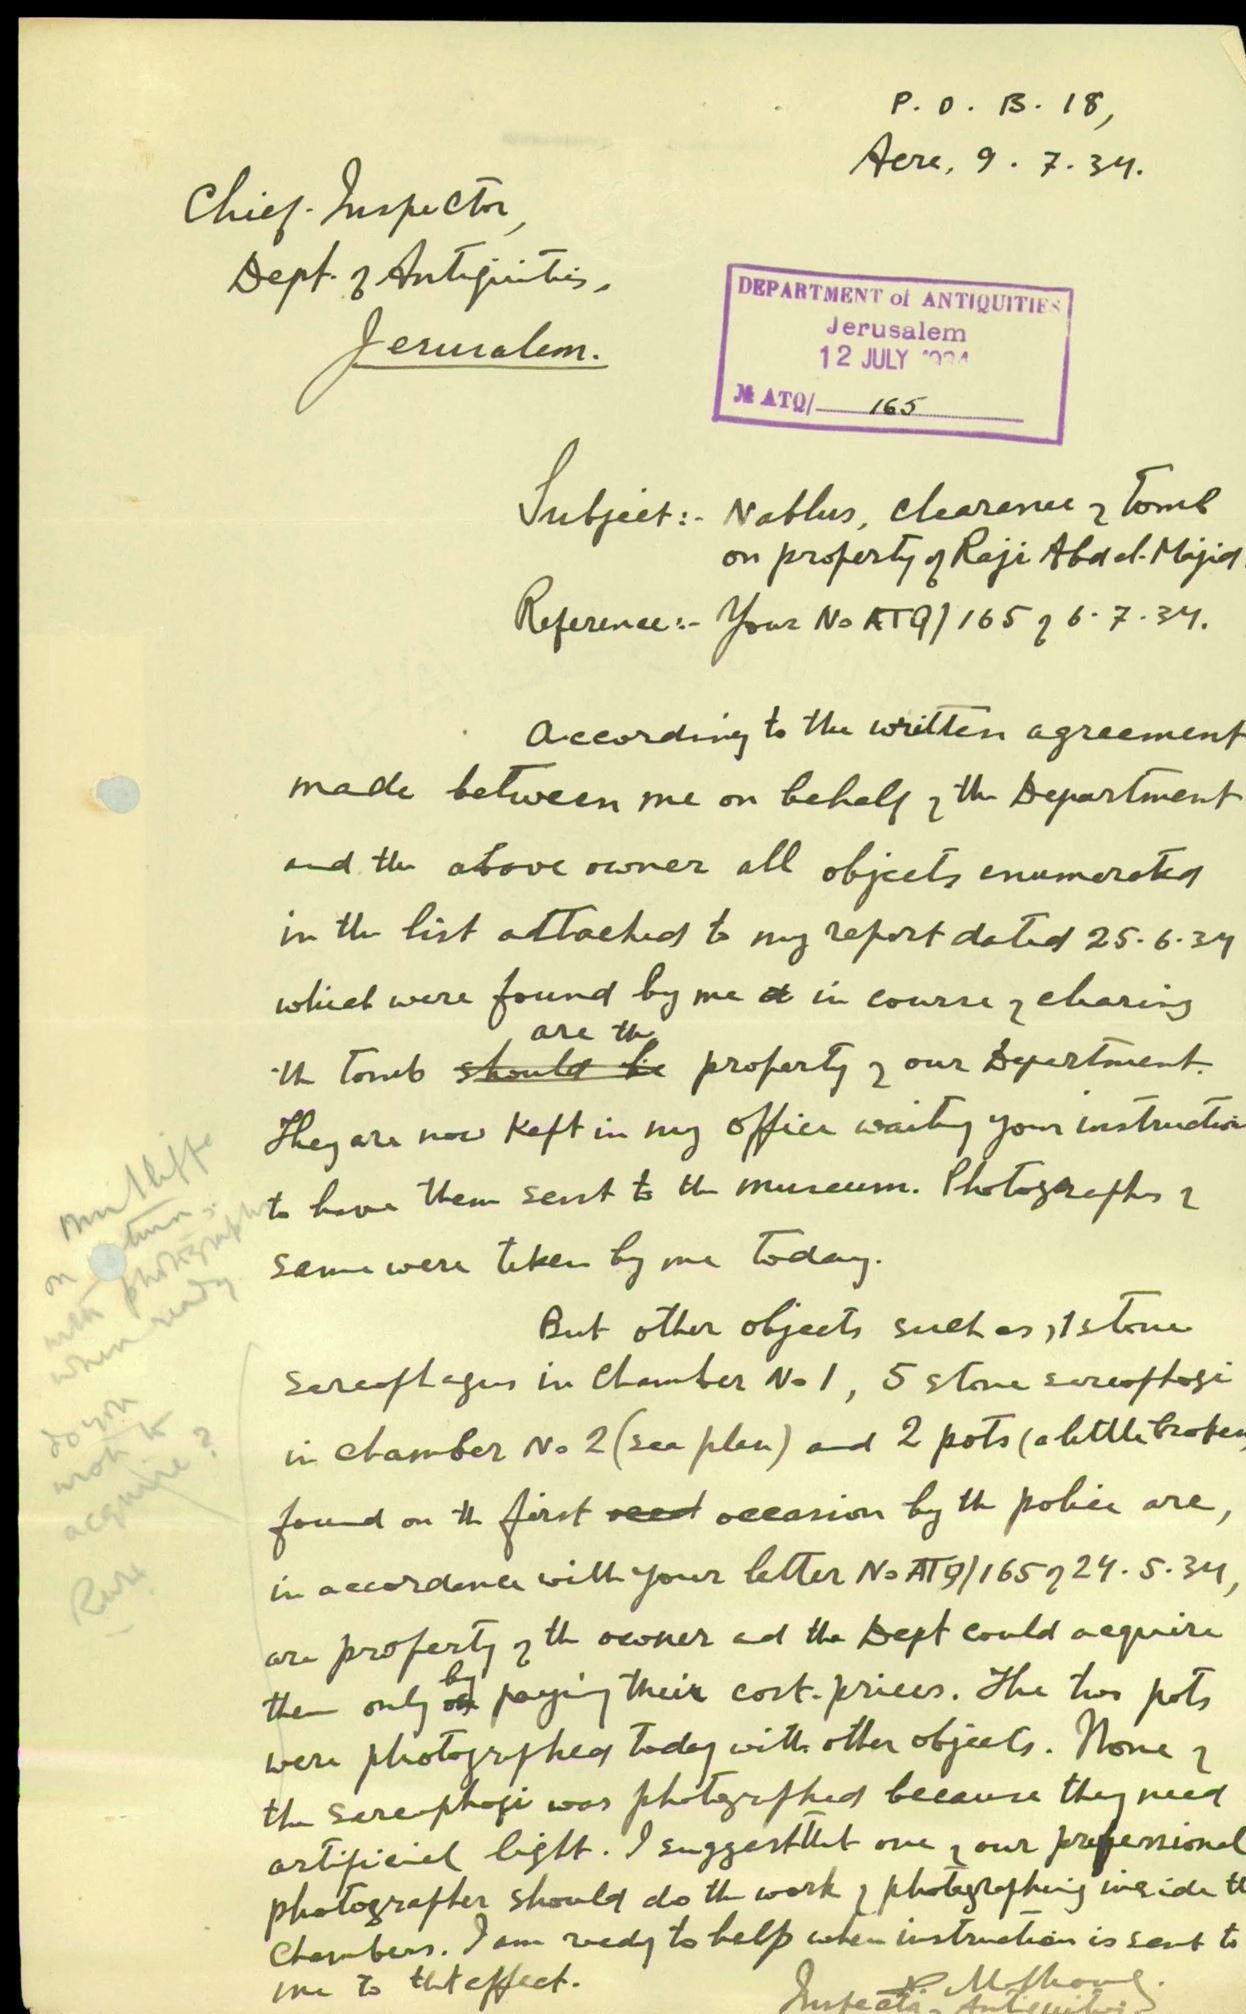 P. O. B. 18,
Acre, 9. 7. 34.
Chief-Inspector,
Dept. of Antiquities,
Jerusalem.
DEPARTMENT of ANTIQUITIES
Jerusalem
12 JULY 1934
№ ATQ/ 165
Subject:- Nablus, clearence of tomb
on property of Raji Abd el-Majid.
Reference:- Your No ATQ/165 of 6.7.34.
According to the written agreement
made between me on behalf of the Department
and the above owner all objects enumerated
in the list attached to my report dated 25.6.34
which were found by me in course of clearing
are the
the tomb should be property of our Department.
They are now kept in my office waiting your instruction
to have them sent to the museum. Photographs of
same were taken by me today.
But other objects such as, 1 stone
sarcophagus in Chamber No 1, 5 stone sarcophagi
in chamber No 2 (see plan) and 2 pots (a little broken)
found on the first occasion by the police are,
in accordance with your letter No ATQ/165 of 24.5.34,
are property of the owner and the Dept could acquire
by
them only paying their cost-prices. The two pots
were photographed today with other objects. None of
the sarcophagi was photographed because they need
artificial light. I suggest that one of our professional
photographer should do the work of photographing inside the
Chambers. I am ready to help when instruction is sent to
me to that effect.
Inspector of Antiquities
Mr Iliffe
on return
with photographs
when ready
do you
wish to
acquire?